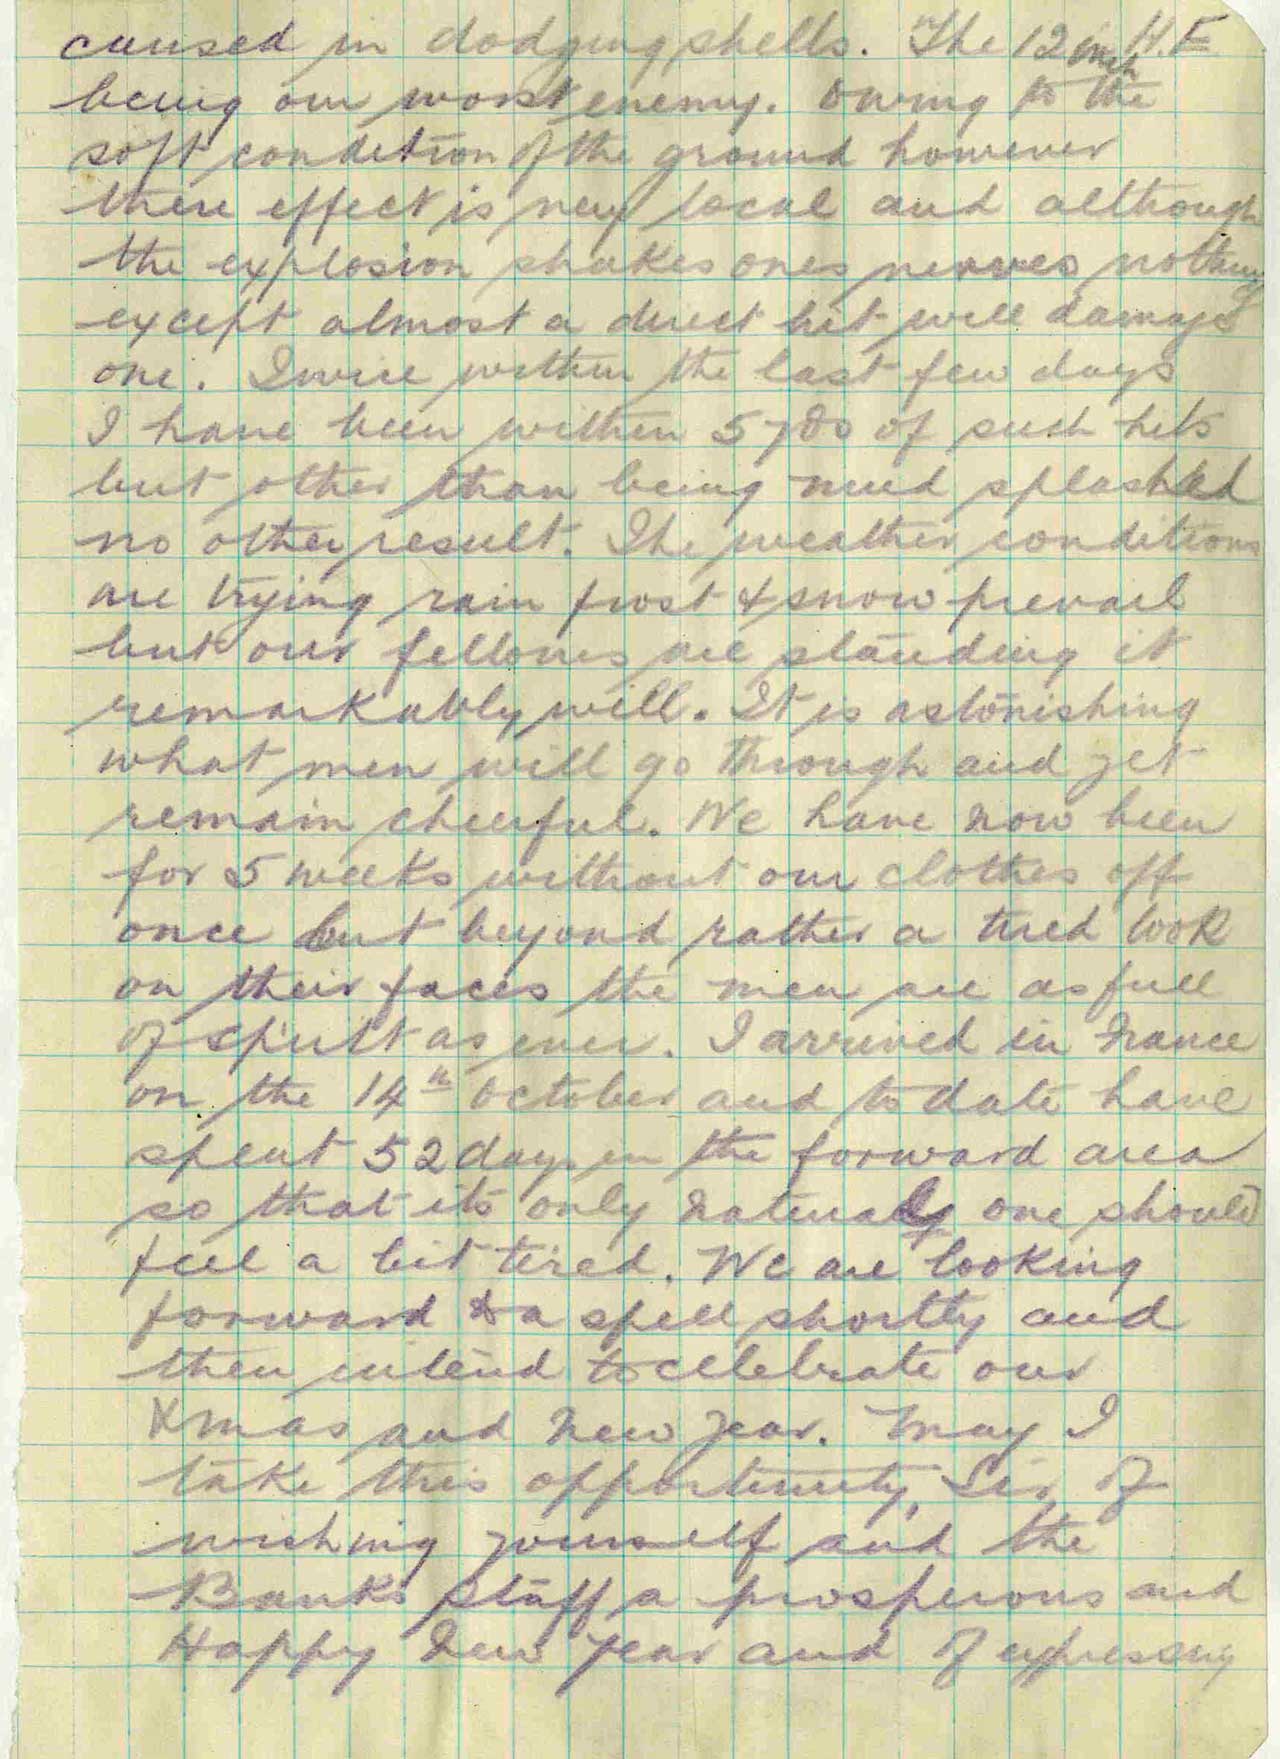 caused in dodging shells. The 12 inch H.E
being our worst enemy. Owing to the
soft condition of the ground however
there effect is very local and although
the explosion shakes ones nerves nothing
except almost a direct hit will damage
one. Twice within the last few days
I have been within 5 yds of such hits
but other than being mud splashed
no other result. The weather conditions
are trying rain frost & snow prevail
but our fellows are standing it
remarkably well. It is astonishing
what men will go through and yet
remain cheerful. We have now been
for 5 weeks without our clothes off
once but beyond rather a tired look
on their faces the men are as full
of spirit as ever. I arrived in France
on the 14th October and to date have
spent 52 days in the forward area
so that its only natural one should
feel a bit tired. We are looking
forward to a spell shortly and
then intend to celebrate our
Xmas and New Year. May I
take this opportunity, Sir, of
wishing yourself and the
Banks staff a prosperous and
Happy New Year and of expressing